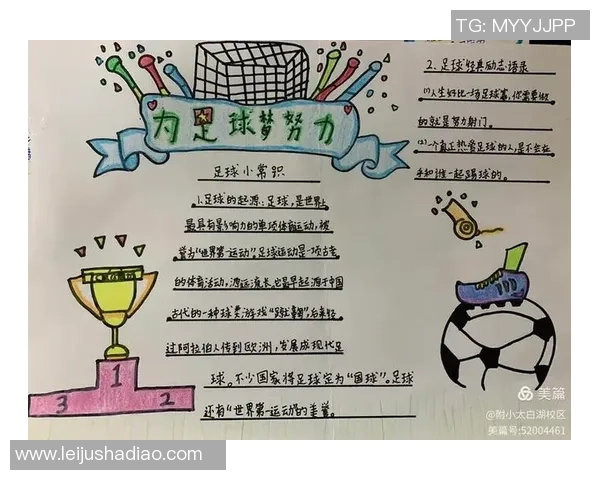 TG: MYYJJPP
为足球梦努力
足球小常识
1、足球的起源:足球,是世界上
最具有影响力的单项体育运动,被
誉为“世界第一运动”,足球运动是一项古老
的体育活动,源远流长。它最早起源于中国
古代的一种球类游戏“蹴鞠”,后来经
过阿拉伯人传到欧洲,发展成现代足
球。不少国家将足球定为“国球”。足球
还有“世界第一运动”的美誉。
2、足球经典励志语录
(1)人生好比一场足球赛,你需要做
的就是努力射门。
(2)一个真正热爱足球的人,是不会在
乎和谁一起踢球的。
1
3
2
美篇
@附小太白湖校区
美篇号:52004461
www.leijushadiao.com